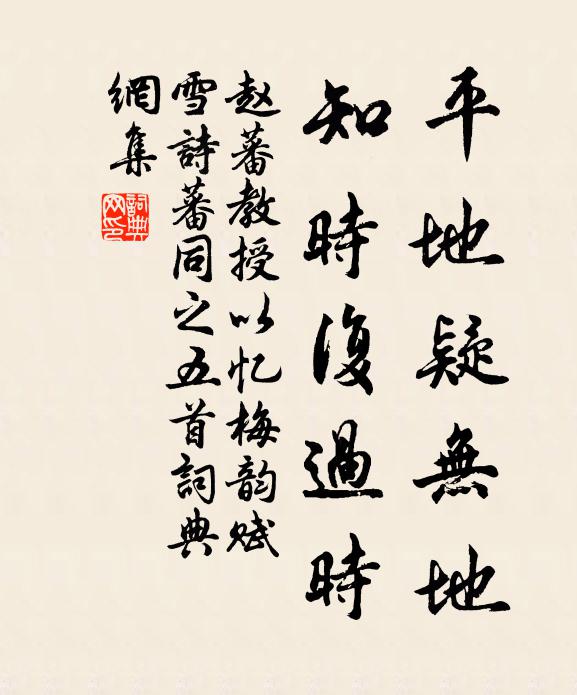 平地疑無地
知時復過時
赵蕃教授以忆梅韵赋
雪詩蕃同之五首詞典
網集
詞典
网印